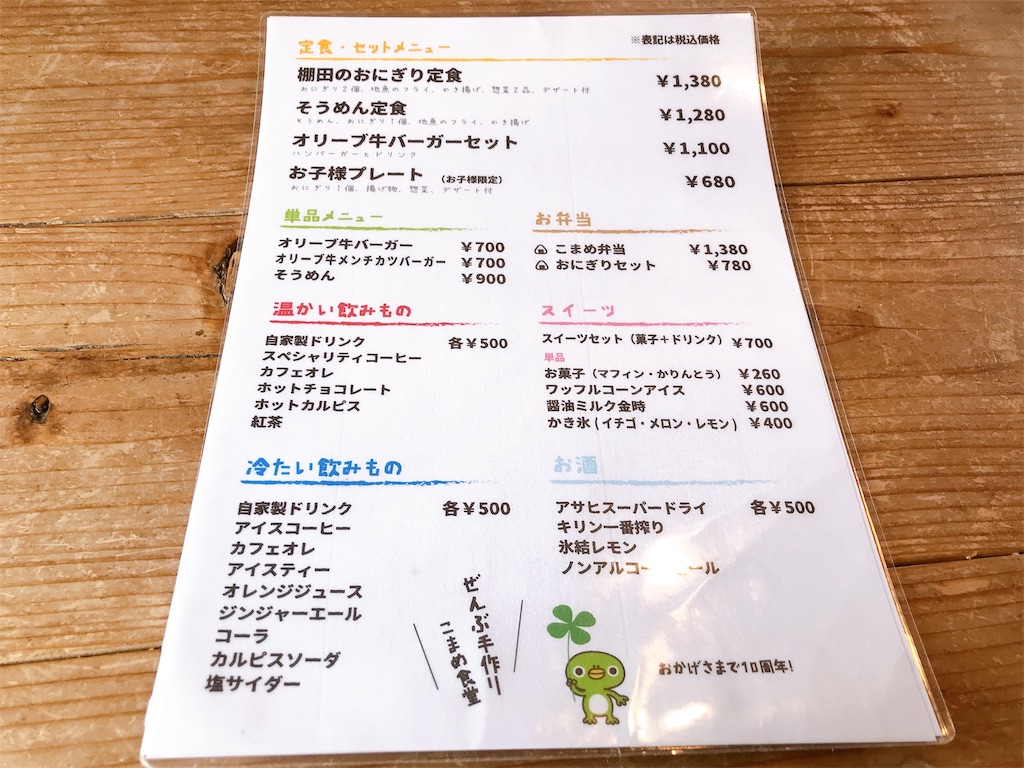 定食・セットメニュー
※表記は税込価格
棚田のおにぎり定食 ￥1,380
おにぎり２個、地魚のフライ、かき揚げ、惣菜２品、デザート付
そうめん定食 ￥1,280
そうめん、おにぎり１個、地魚のフライ、かき揚げ
オリーブ牛バーガーセット ￥1,100
ハンバーガーとドリンク
お子様プレート （お子様限定） ￥680
おにぎり１個、揚げ物、惣菜、デザート付
単品メニュー
オリーブ牛バーガー ￥700
オリーブ牛メンチカツバーガー ￥700
そうめん ￥900
お弁当
こまめ弁当 ￥1,380
おにぎりセット ￥780
温かい飲みもの
自家製ドリンク 各￥500
スペシャリティコーヒー
カフェオレ
ホットチョコレート
ホットカルピス
紅茶
スイーツ
スイーツセット（菓子＋ドリンク） ￥700
単品
お菓子（マフィン・かりんとう） ￥260
ワッフルコーンアイス ￥600
醤油ミルク金時 ￥600
かき氷 ( イチゴ・メロン・レモン ) ￥400
冷たい飲みもの
自家製ドリンク 各￥500
アイスコーヒー
カフェオレ
アイスティー
オレンジジュース
ジンジャーエール
コーラ
カルピスソーダ
塩サイダー
お酒
アサヒスーパードライ 各￥500
キリン一番搾り
氷結レモン
ノンアルコールビール
ぜんぶ手作り
こまめ食堂
おかげさまで10周年!